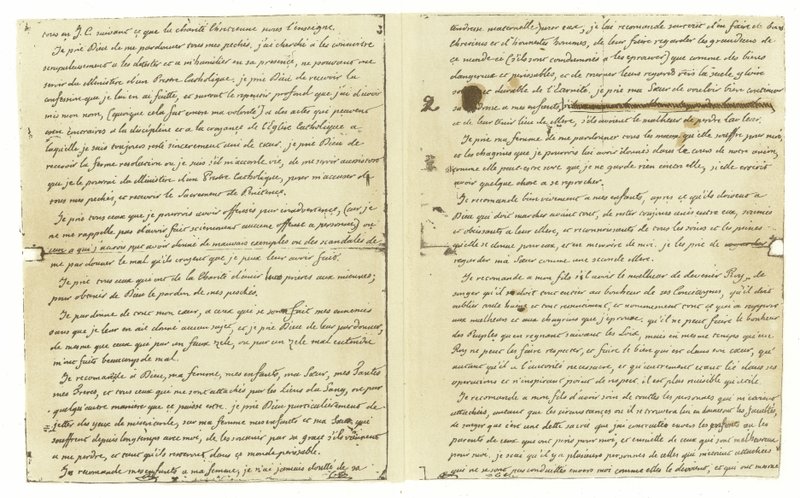 tous en J.C. suivant ce que la charité Chrétienne nous l'enseigne.
Je prie Dieu de me pardonner tous mes pechés, j'ai cherché a les connoitre
scrupuleusement a les detester et a m'humilier en sa presence, ne pouvant me
servir du Ministere d'un Prestre Catholique, je prie Dieu de recevoir la
confession que je lui en ai faitte, et surtout le repentir profond que j'ai d'avoir
mis mon nom, (quoique cela fut contre ma volonté) a des actes qui peuvent
estre contraires a la discipline et a la croyance de l'Eglise Catholique a
laquelle je suis toujours resté sincerement uni de cœur. je prie Dieu de
recevoir la ferme resolution ou je suis s'il m'accorde vie, de me servir aussitost
que je le pourrai du Ministere d'un Prestre Catholique, pour m'accuser de
tous mes pechés, et recevoir le Sacrement de Penitence.
Je prie tous ceux que je pourrois avoir offensés par inadvertence, (car je
ne me rappelle pas d'avoir fait sciemment aucune offense a personne) ou
ceux a qui j'aurois pue avoir donné de mauvais exemples ou des scandales de
me pardonner le mal qu'ils croyent que je peux leur avoir fait.
Je prie tous ceux qui ont de la Charité d'unir leurs prieres aux miennes,
pour obtenir de Dieu le pardon de mes pechés.
Je pardonne de tout mon cœur, a ceux qui se sont fait mes ennemies
sans que je leur en aie donné aucun sujet, et je prie Dieu de leur pardonner,
de même que ceux qui par un faux zele, ou par un zele mal entendu
m'ont fait beaucoup de mal.
Je recomande a Dieu, ma femme, mes enfants, ma Sœur, mes Tantes
mes Freres, et tous ceux qui me sont attachés par les liens du Sang, ou par
quelqu'autre maniere que ce puisse estre. je prie Dieu particulierement de
jetter des yeux de misericorde, sur ma femme mes enfants et ma Sœur qui
souffrent depuis longtemps avec moi, de les soutenir par sa grace s'ils viennent
a me perdre, et tant qu'ils resteront dans ce monde perissable.
Je recomande mes enfants a ma femme, je n'ai jamais doutté de sa
2
tendresse maternelle pour eux, je lui recomande surtout d'en faire de bons
Chretiens et d'honnetes hommes, de leur faire regarder les grandeurs de
ce monde ci (s'ils sont condamnés a les eprouver) que comme des biens
dangereux et perissables, et de tourner leurs regards vers la seule gloire
et durable de l'Eternité, je prie ma Sœur de vouloir bien continuer
a mes enfants,
et de leur tenir lieu de Mere, s'ils avoient le malheur de perdre la leur.
Je prie ma femme de me pardonner tous les maux qu'elle souffre pour moi,
et les chagrins que je pourrois lui avoir donnés dans le cours de notre union,
comme elle peut estre sure que je ne garde rien contre elle, si elle croioit
avoir quelque chose a se reprocher.
Je recomande bien vivement a mes enfants, après ce qu'ils doivent a
Dieu qui doit marcher avant tout, de rester toujours unis entre eux, soumis
et obeissants a leur Mere, et reconnoissants de tous les soins et les peines
qu'elle se donne pour eux, et en memoire de moi. je les prie de
regarder ma Sœur comme une seconde Mere.
Je recomande a mon fils s'il avoit le malheur de devenir Roy, de
songer qu'il se doit tout entier au bonheur de ses Concitoyens, qu'il doit
oublier toute haine et tout ressentiment, et nommement tout ce qui a rapport
aux malheurs et aux chagrins que j'eprouve, qu'il ne peut faire le bonheur
des Peuples qu'en regnant suivant les Loix, mais en mesme temps qu'un
Roy ne peut les faire respecter, et faire le bien qui est dans son cœur, qu'
autant qu'il a l'autorité necessaire, et qu'autrement etant lié dans ses
operations et n'inspirant point de respect, il est plus nuisible qu'utile.
Je recomande a mon fils d'avoir soin de touttes les personnes qui m'etoient
attachées, autant que les circonstances ou il se trouvera lui en donneront les facultés,
de songer que c'est une dette sacrée que j'ai contractée envers les enfants ou les
parents de ceux qui ont péris pour moi, et ensuitte de ceux qui sont malheureux
pour moi, je sçai qu'il y a plusieurs personnes de celles qui m'etoient attachées
qui ne se sont pas conduittes envers moi comme elles le devoient, et qui ont mesme